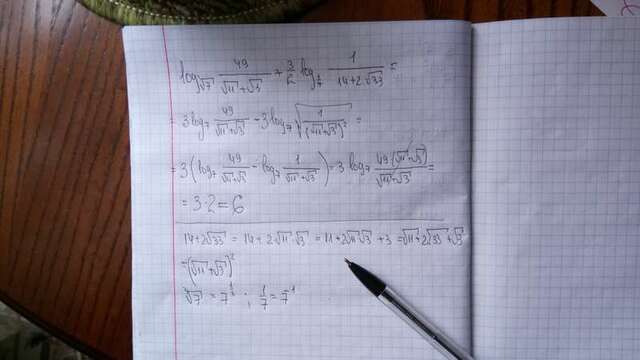 log_{∛7} 49/(√11+√3) + 3/2 log_{1/7} 1/(14+2√33) =
= 3log₇ 49/(√11+√3) - 3log₇ √(1/(√11+√3)²) =
= 3(log₇ 49/(√11+√3) - log₇ 1/(√11+√3)) = 3 log₇ 49(√11+√3)/(√11+√3) =
= 3·2 = 6
14+2√33 = 14+2√11·√3 = 11+2√11√3+3 = √11+2√33+√3
= (√11+√3)²
∛7 = 7^{1/3} ; 1/7 = 7⁻¹